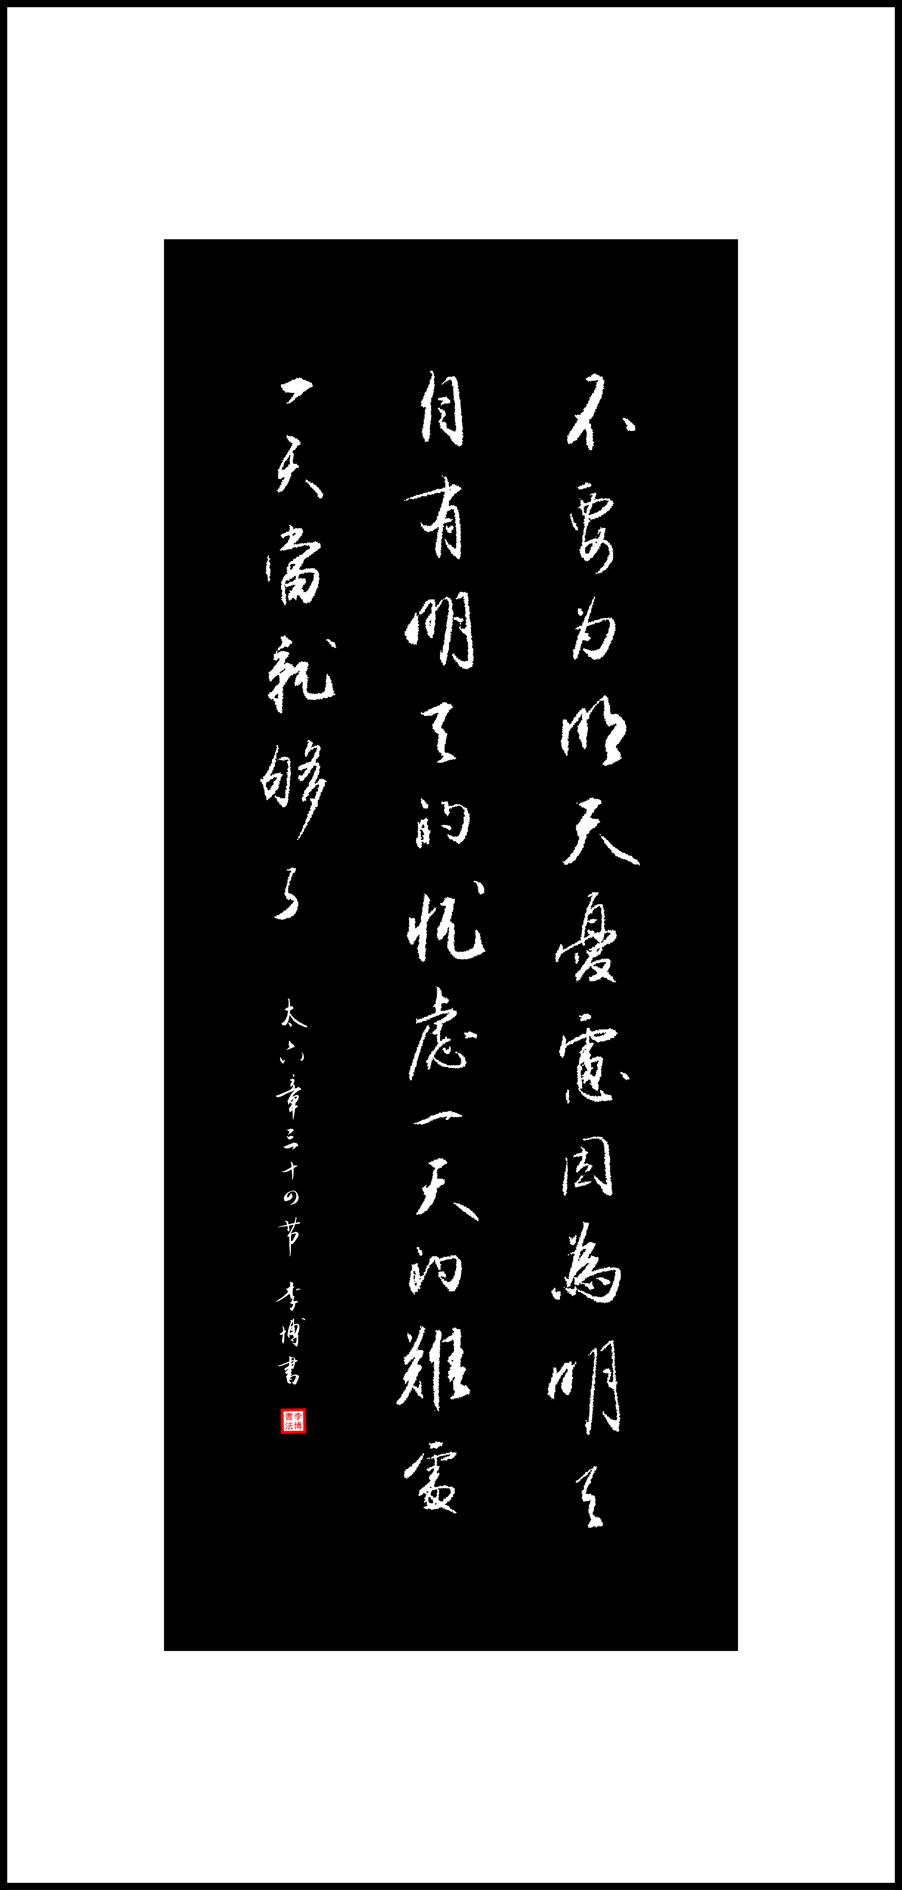 不要为明天憂慮因為明天
自有明天的忧虑一天的難處
一天當就够了
太六章三十四节 李博書
李博書法